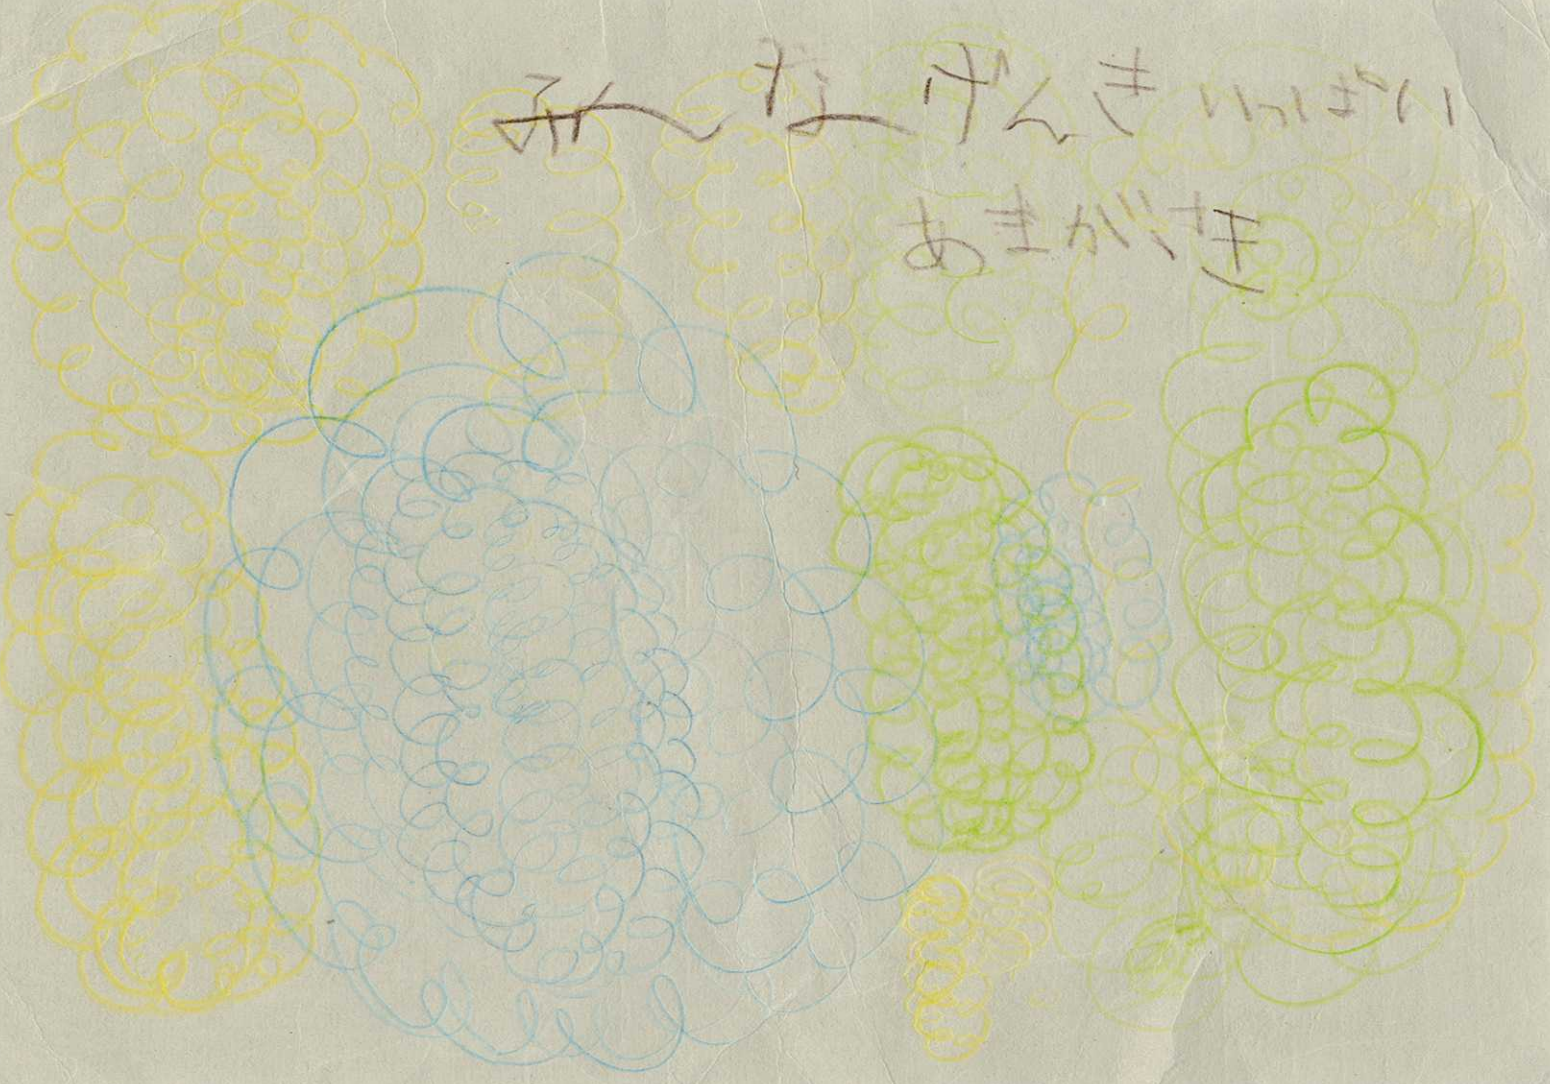 みんなげんきいっぱい
あまがさき